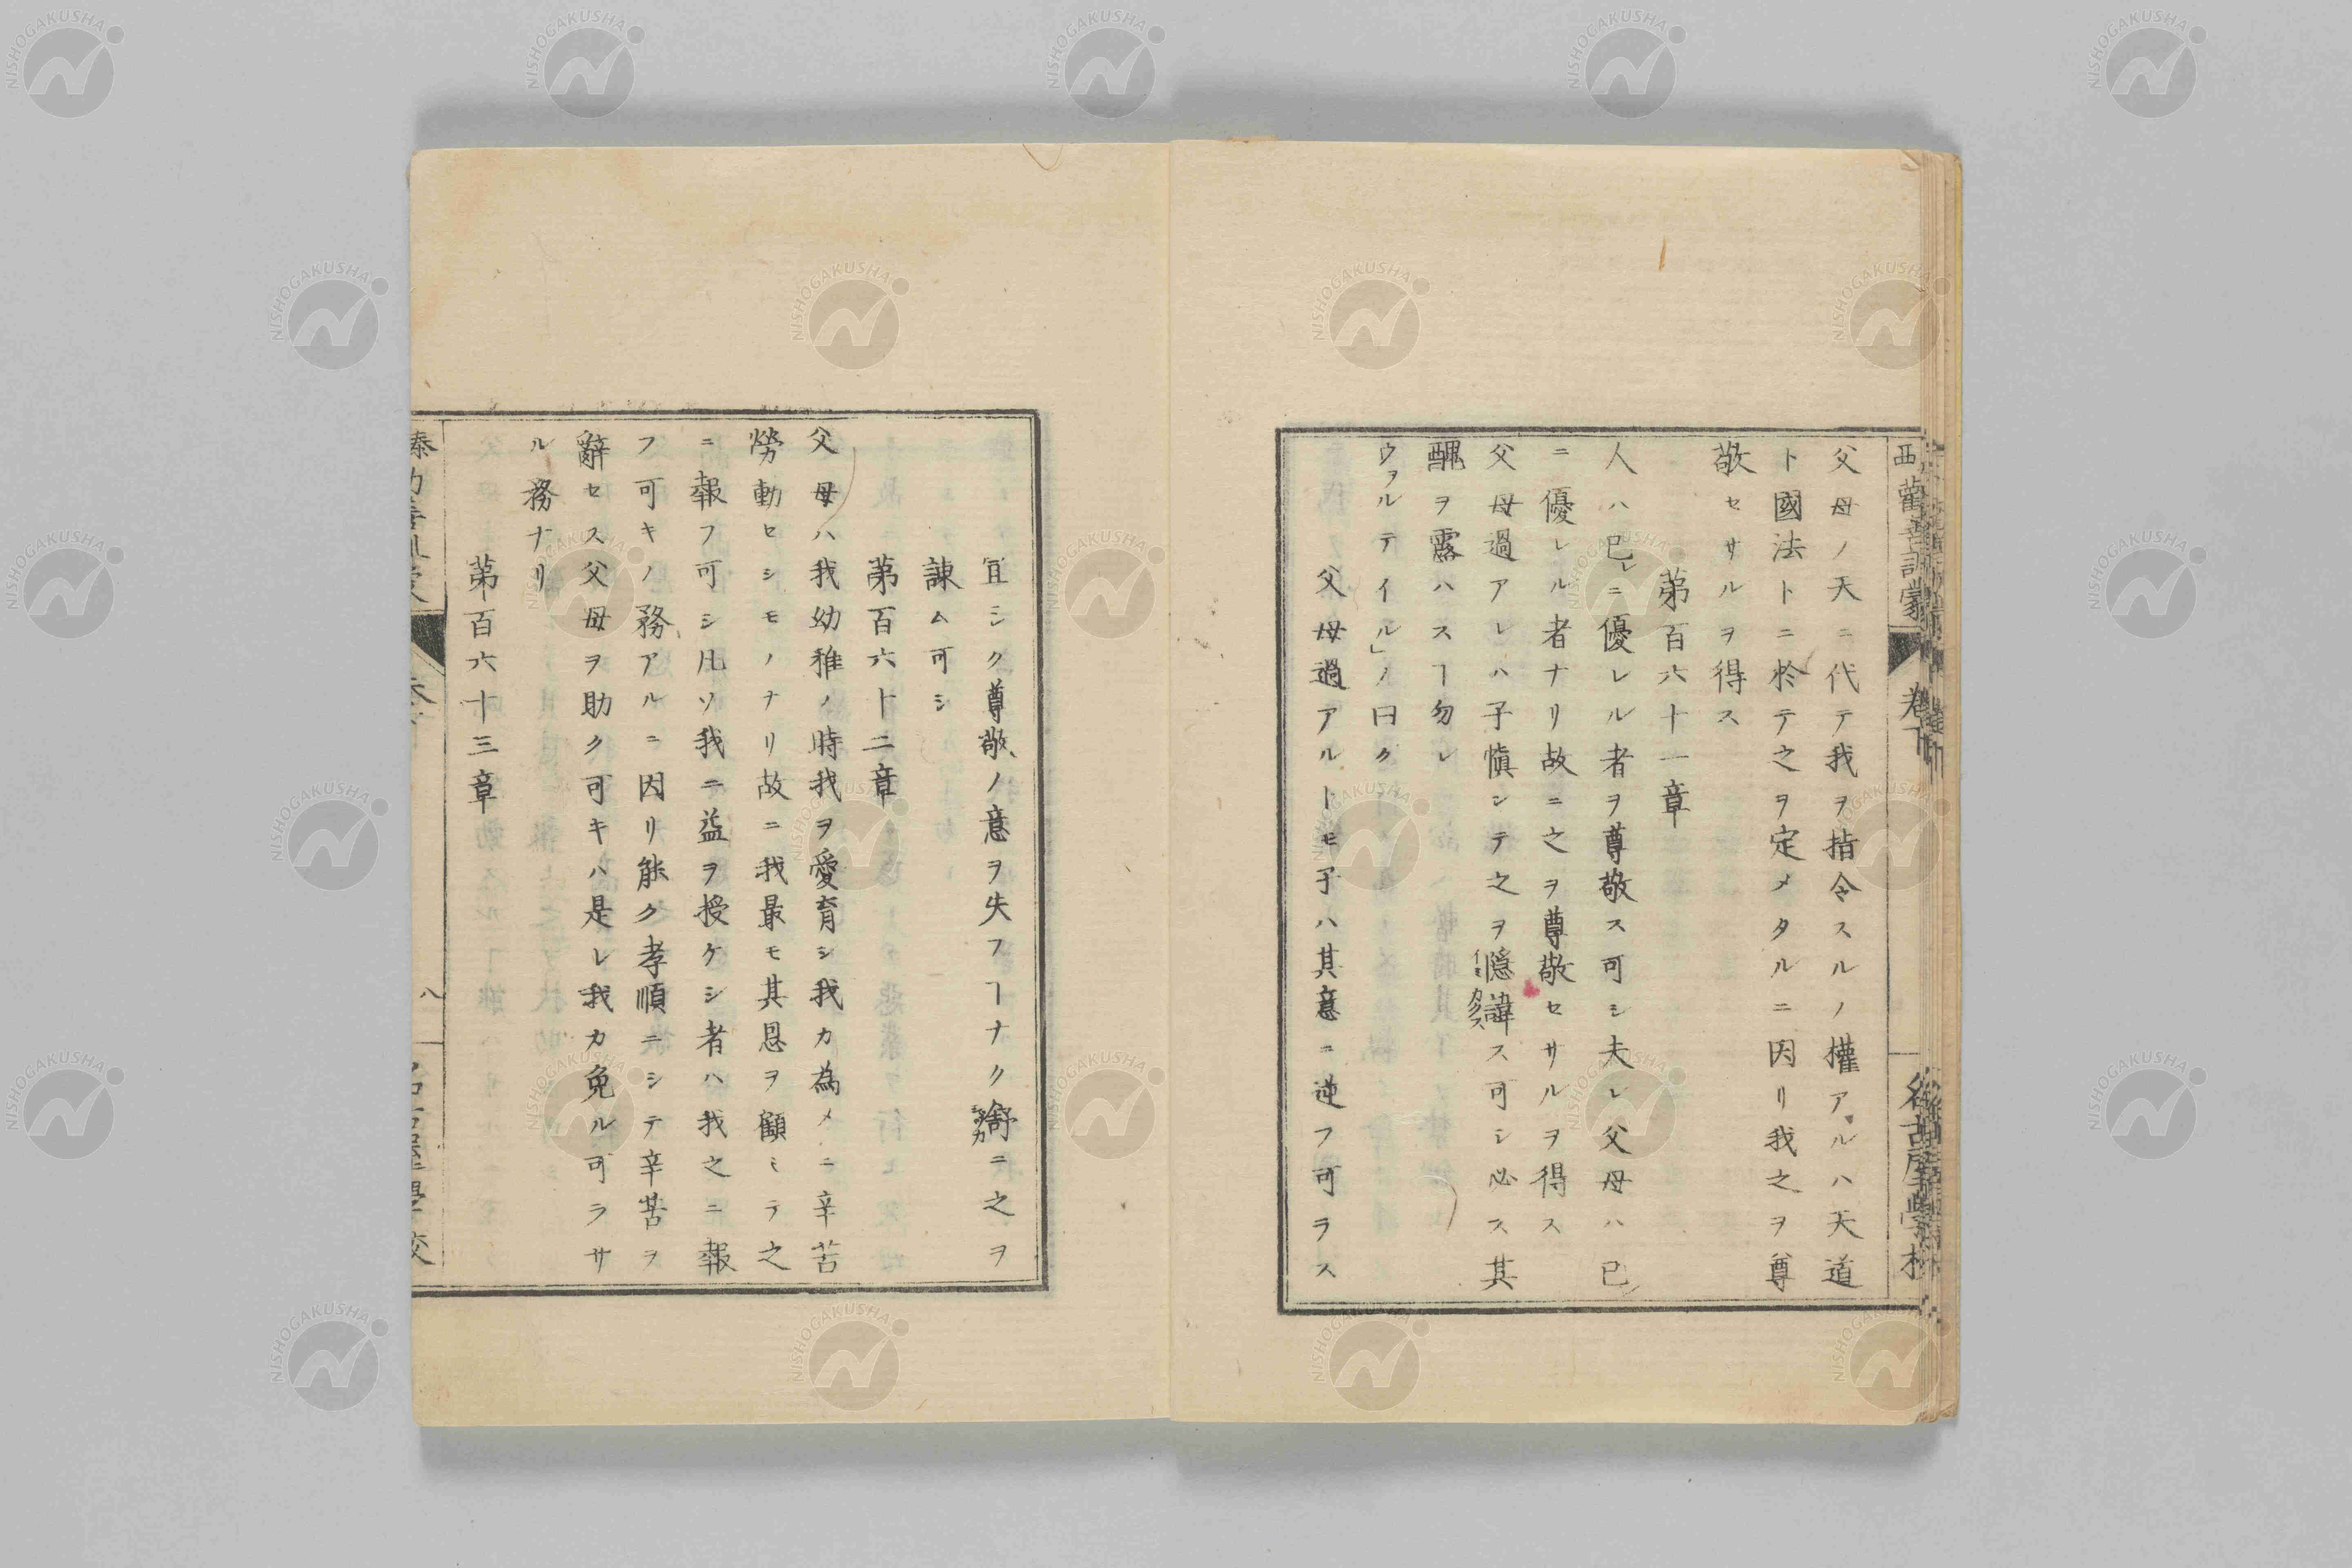 父母ノ天ニ代テ我ヲ指令スルノ權アルハ天道
ト國法トニ於テ之ヲ定メタルニ因リ我之ヲ尊
敬セサルヲ得ス
第百六十一章
人ハ已レニ優レル者ヲ尊敬ス可シ夫レ父母ハ已
ニ優レル者ナリ故ニ之ヲ尊敬セサルヲ得ス
父母過アレハ子慎シテ之ヲ隱諱ス可シ必ス其
醜ヲ露ハスヿ勿レ
ウァルテイル」ノ曰ク
父母過アルトモ子ハ其意ニ逆フ可ラス
宜シク尊敬ノ意ヲ失フヿナク舒ニ之ヲ
諌ム可シ
第百六十二章
父母ハ我幼稚ノ時我ヲ愛育シ我カ為メニ辛苦
勞動セシモノナリ故ニ我最モ其恩ヲ顧ミテ之
ニ報フ可シ凡ソ我ニ益ヲ授ケシ者ハ我之ニ報
フ可キノ務アルニ因リ能ク孝順ニシテ辛苦ヲ
辭セス父母ヲ助ク可キハ是レ我カ免ル可ラサ
ル務ナリ
第百六十三章
八
NISHOGAKUSHA